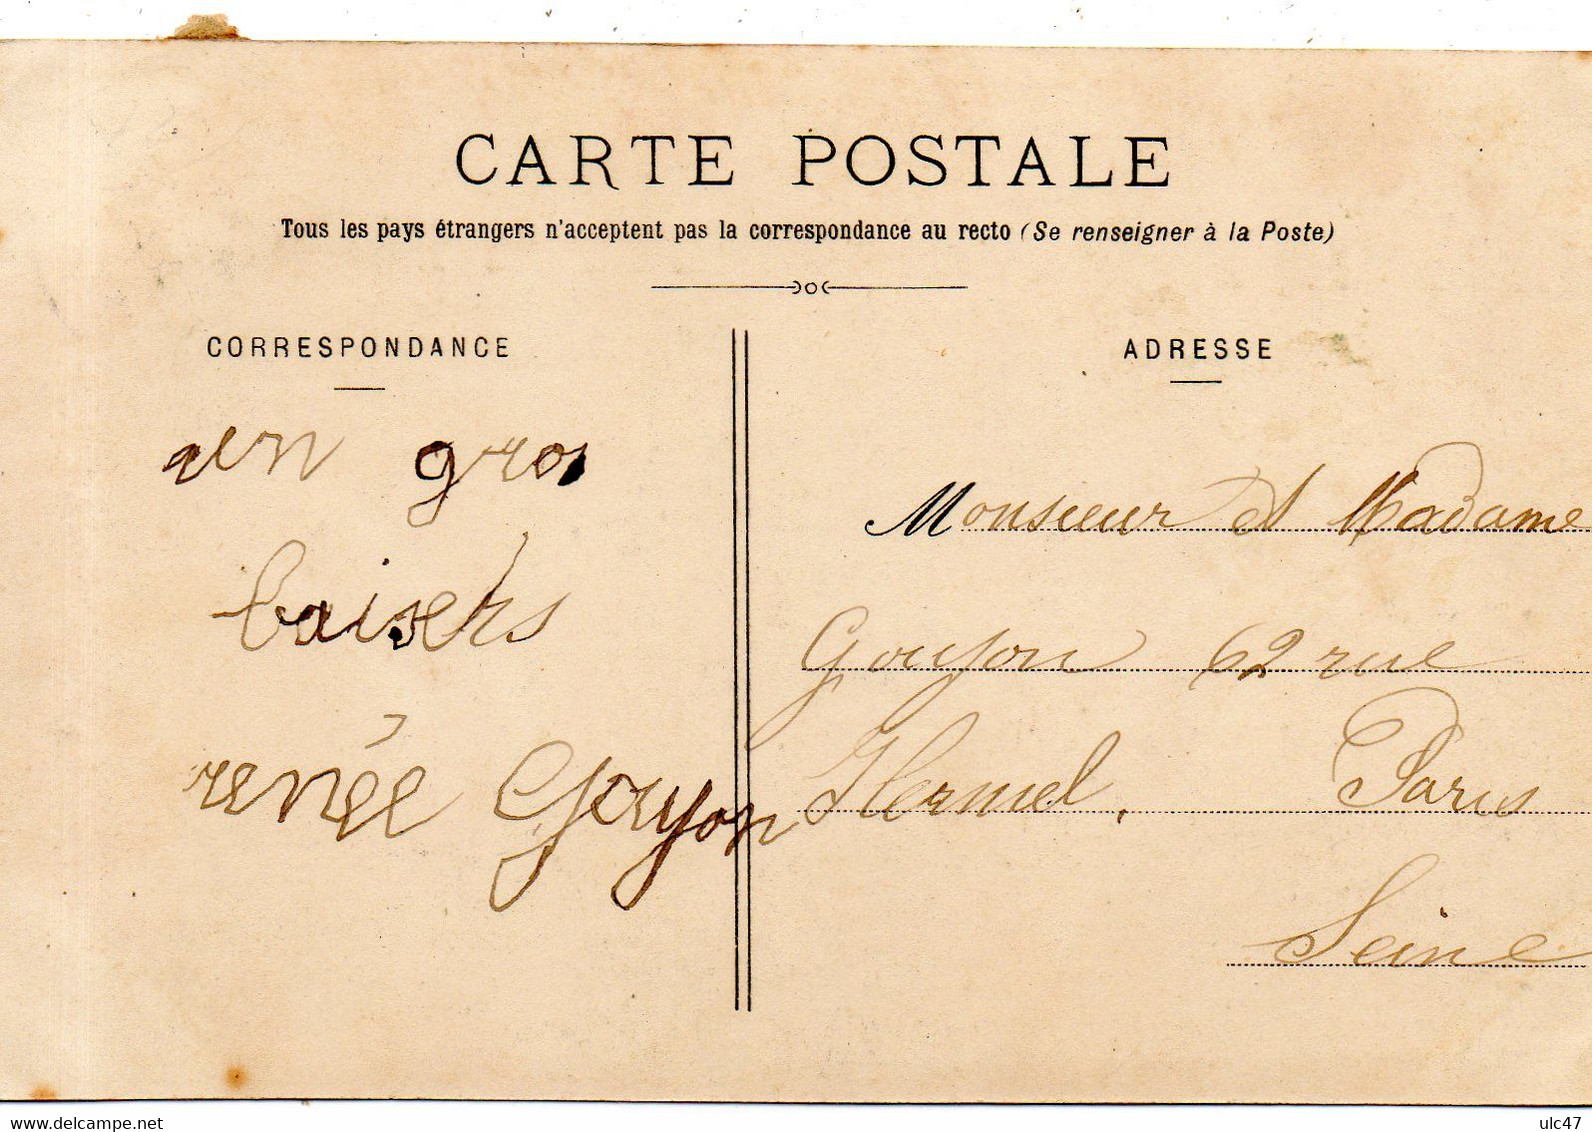 CARTE POSTALE
Tous les pays étrangers n'acceptent pas la correspondance au recto (Se renseigner à la Poste)
CORRESPONDANCE
un gros
baisers
renée Goujon
ADRESSE
Monsieur et Madame
Goujon 62 rue
Hermel, Paris
Seine
www.delcampe.net
ulc47